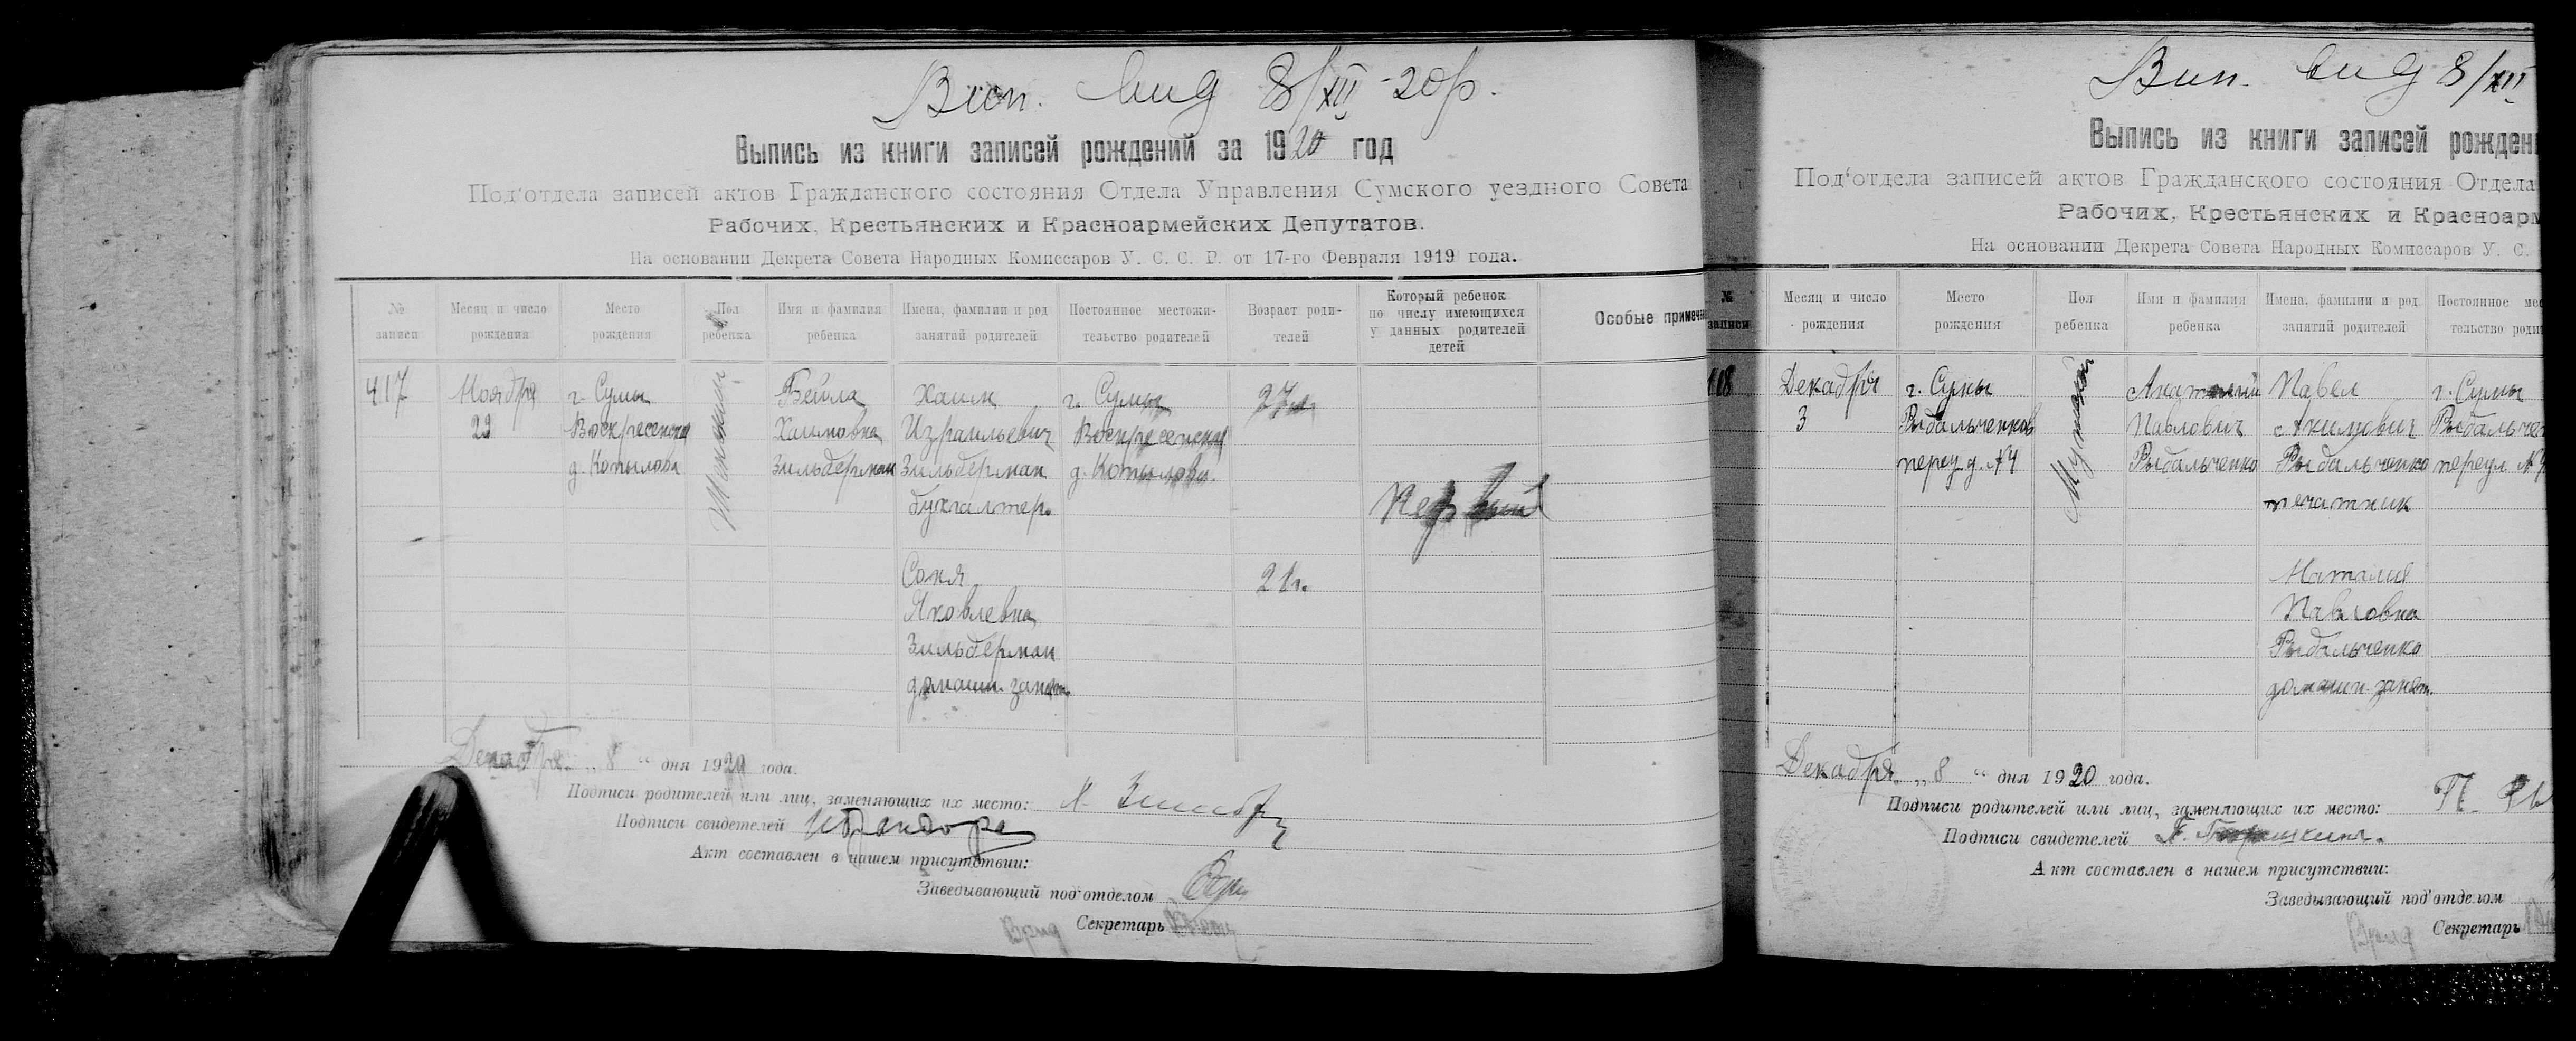 Вип. вид 8/XII-20р.
Выпись из книги записей рождений за 1920 год
Под'отдела записей актов Гражданского состояния Отдела Управления Сумского уездного Совета
Рабочих, Крестьянских и Красноармейских Депутатов.
На основании Декрета Совета Народных Комиссаров У. С. С. Р. от 17-го Февраля 1919 года.
№ записи
Месяц и число рождения
Место рождения
Пол ребенка
Имя и фамилия ребенка
Имена, фамилии и род занятий родителей
Постоянное местожи- тельство родителей
Возраст роди- телей
Который ребенок по числу имеющихся у данных родителей детей
Особые примеча
417
Ноября
29
г. Сумы
Воскресенска
д. Копылова
Женский
Бейла
Хаимовна
Зильберман
Хаим
Израильевич
Зильберман
бухгалтер.
Соня
Яковлевна
Зильберман
домашн. занят.
г. Сумы
Воскресенска
д. Копылова.
27л.
21г.
Первый
Декабря „8“ дня 1920 года.
Подписи родителей или лиц, заменяющих их место:
Подписи свидетелей
Акт составлен в нашем присутствии:
Заведывающий под'отделом
Врид Секретарь
Вип. вид 8/XII
Выпись из книги записей рожден
Под'отдела записей актов Гражданского состояния Отдела
Рабочих, Крестьянских и Красноарм
На основании Декрета Совета Народных Комиссаров У. С.
№ записи
Месяц и число рождения
Место рождения
Пол ребенка
Имя и фамилия ребенка
Имена, фамилии и род занятий родителей
Постоянное мес тельство роди
418
Декабря
3
г. Сумы
Рыбальченков
переу д. №4
Мужской
Анатолий
Павлович
Рыбальченко
Павел
Акимович
Рыбальченко
печатник
Наталия
Павловна
Рыбальченко
домашн. занят.
г. Сумы
Рыбальчен
переул №4
Декабря „8“ дня 1920 года.
Подписи родителей или лиц, заменяющих их место: П. Ры
Подписи свидетелей
Акт составлен в нашем присутствии:
Заведывающий под'отделом
Врид Секретарь